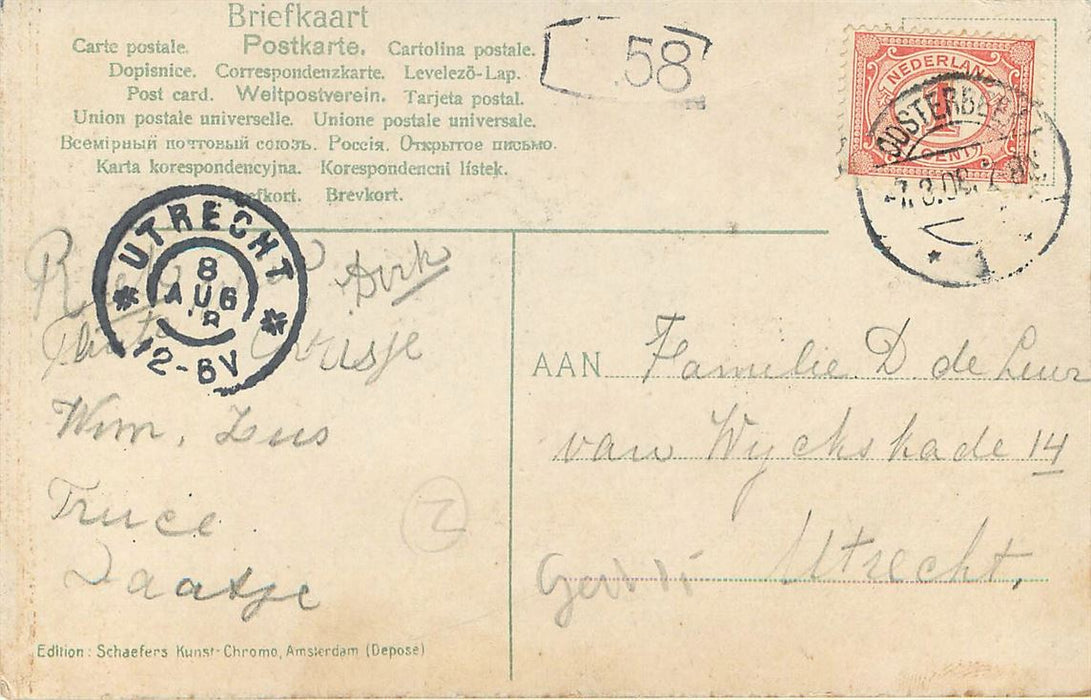 Briefkaart
Carte postale. Postkarte. Cartolina postale.
Dopisnice. Correspondenzkarte. Levelezō-Lap.
Post card. Weltpostverein. Tarjeta postal.
Union postale universelle. Unione postale universale.
Всемірный почтовый союзъ. Россія. Открытое письмо.
Karta korespondencyjna. Korespondencni lístek.
efkort. Brevkort.
58
NEDERLAND
1
CENT
OOSTERBEEK
7.8.08.
1
UTRECHT
8
AUG
12-6V
Dirk
Wim, Zus
Truce
Daatje
2
AAN Familie D de Leur
van Wyckskade 14
Utrecht.
Edition: Schaefers Kunst-Chromo, Amsterdam (Deposé)